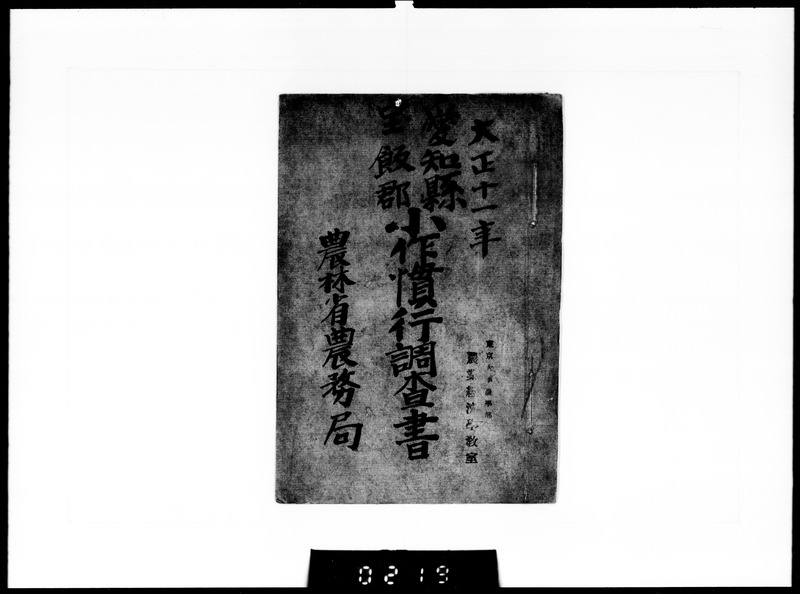 大正十一年
愛知縣
宝飯郡
小作慣行調査書
農林省農務局
東京大学農学部
農業経済学教室
0219